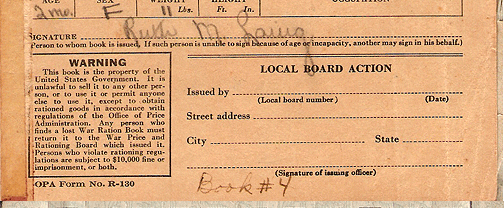 AGE SEX WEIGHT HEIGHT OCCUPATION
2 mo. F 11 Lbs. Ft. In.
SIGNATURE Ruth M. Laurg
(Person to whom book is issued. If such person is unable to sign because of age or incapacity, another may sign in his behalf.)
WARNING
This book is the property of the
United States Government. It is
unlawful to sell it to any other per-
son, or to use it or permit anyone
else to use it, except to obtain
rationed goods in accordance with
regulations of the Office of Price
Administration. Any person who
finds a lost War Ration Book must
return it to the War Price and
Rationing Board which issued it.
Persons who violate rationing regu-
lations are subject to $10,000 fine or
imprisonment, or both.
OPA Form No. R-130
LOCAL BOARD ACTION
Issued by
(Local board number) (Date)
Street address
City State
(Signature of issuing officer)
Book #4